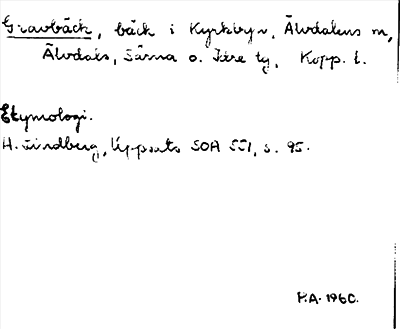 Gravbäck, bäck i Kyrkbyn, Älvdalens sn,
Älvdals, Särna o. Idre tg, Kopp. l.
Etymologi.
H. Lindberg, Uppsats SOA 551, s. 95.
P.A. 1960.